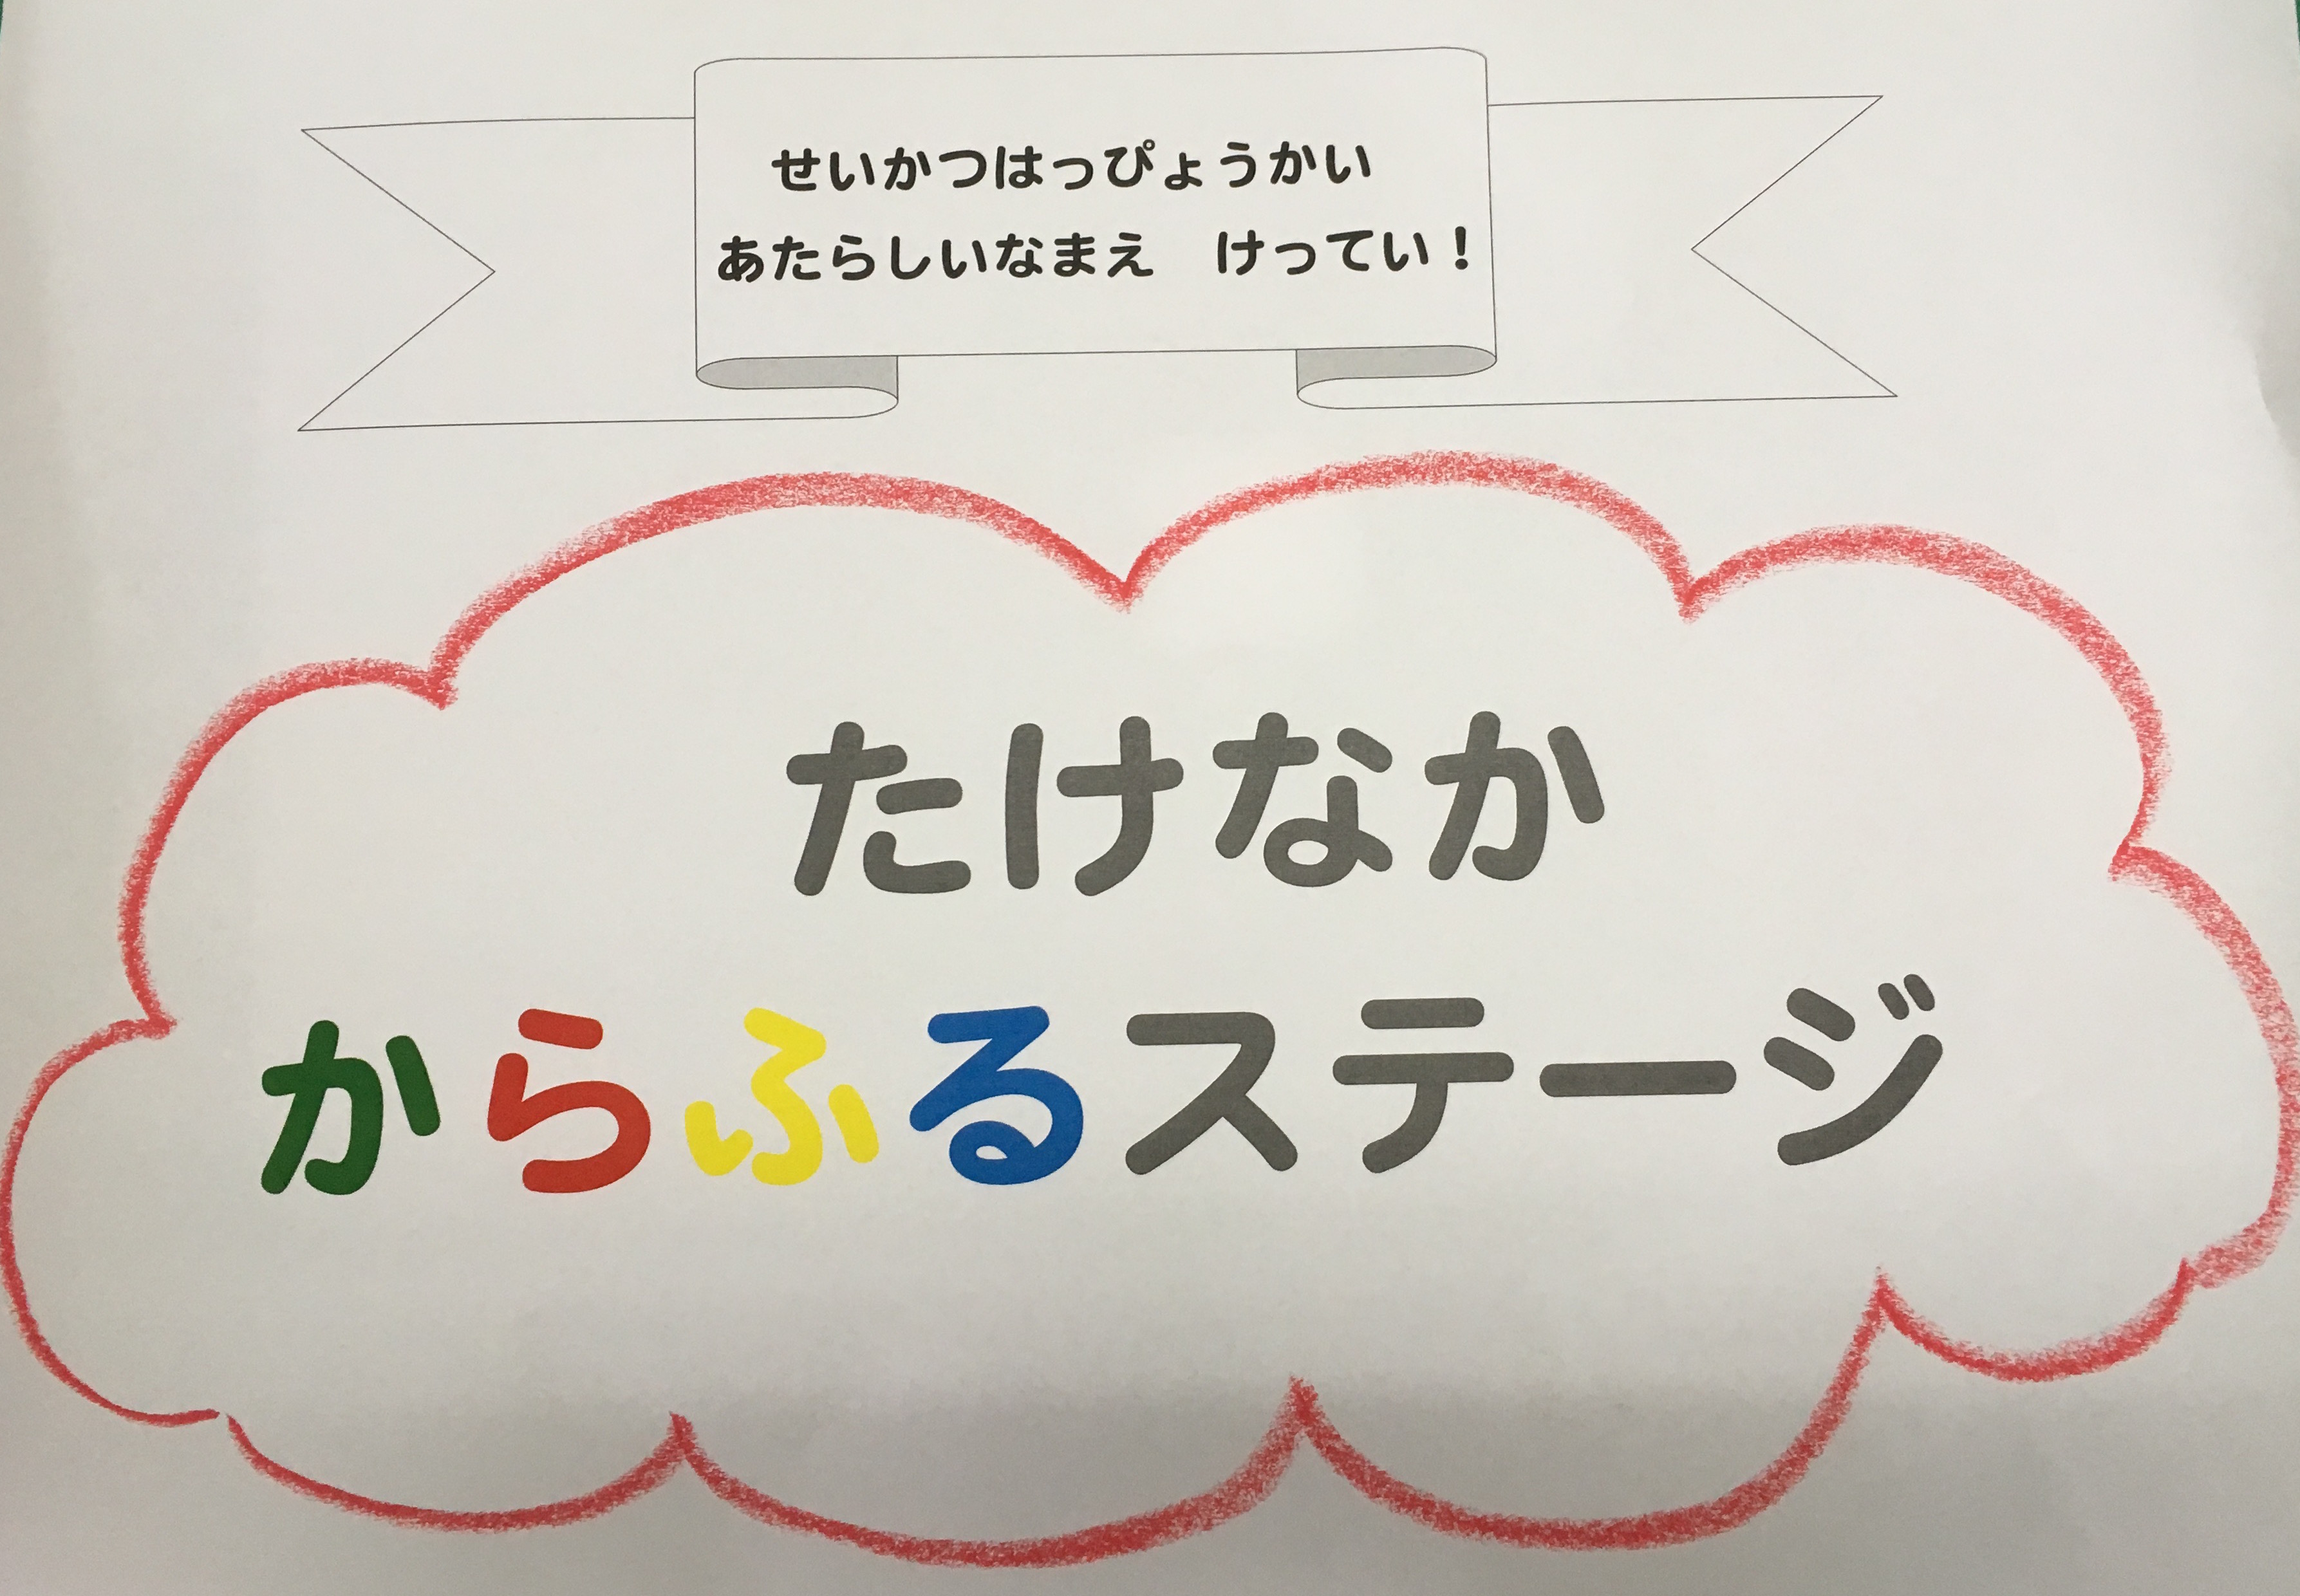 せいかつはっぴょうかい
あたらしいなまえ　けってい！
たけなか
からふるステージ